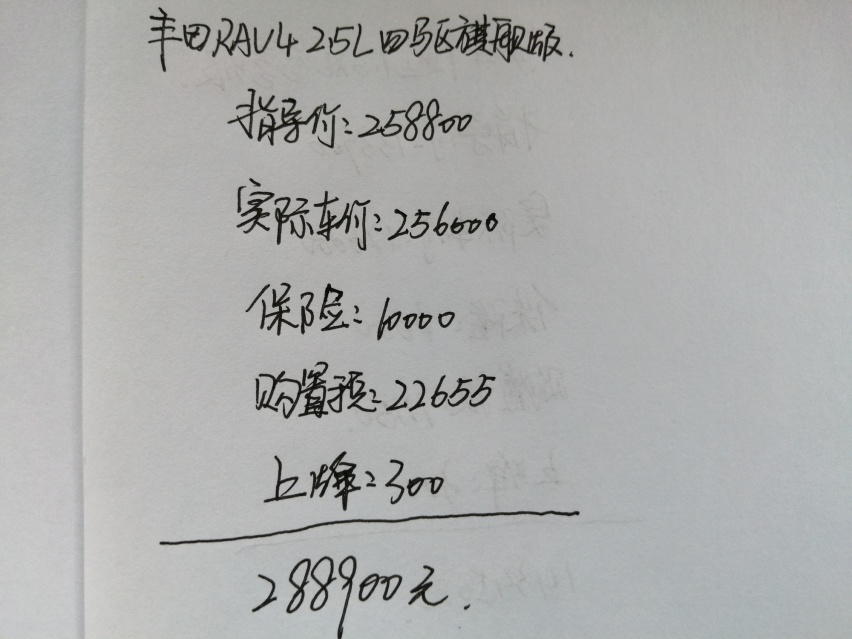 丰田RAV4 2.5L四驱旗舰版.
指导价:258800
实际车价:256000
保险:10000
购置税:22655
上牌:300
288900元.